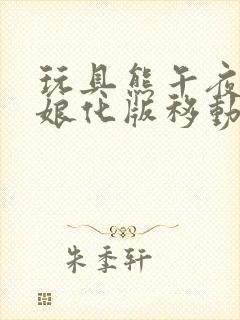 玩具熊午夜
娘化版移动
朱季轩